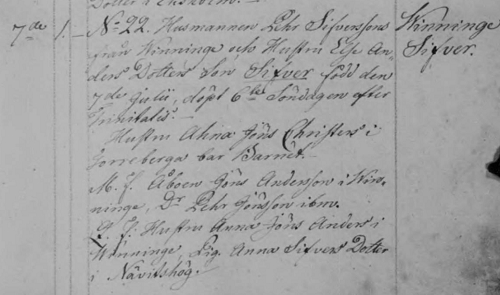 7de 1. – No 22. Husmannen Pehr Sifverssons Winninge
från Winninge och Hustru Else An- Sifver.
ders Dotters Son Sifver född den
7de Julii, döpt 6te Söndagen efter
Trinitatis.
Hustru Ahna Jöns Christens i
Torreberga bar Barnet.
M. f. Åboen Jöns Andersson i Win-
ninge, Dr. Pehr Jönsson ibm.
P. f. Hustru Anna Jöns Anders i
Winninge, Pig. Anna Sifvers Dotter
i Nävitshög.